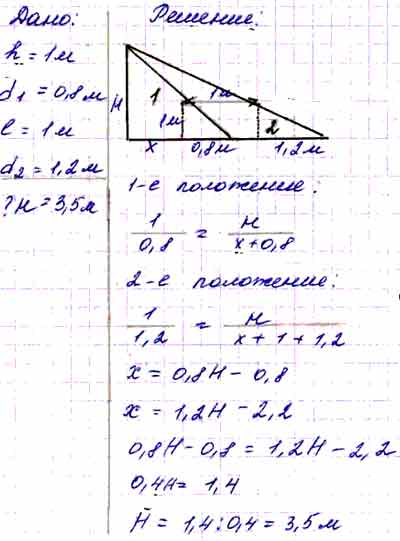 Дано:
h = 1м
d1 = 0,8м
l = 1м
d2 = 1,2м
?H = 3,5м
Решение:
H
1
1м
1м
2
x
0,8м
1,2м
1-е положение:
1/0,8 = H/x+0,8
2-е положение:
1/1,2 = H/x+1+1,2
x = 0,8H - 0,8
x = 1,2H - 2,2
0,8H - 0,8 = 1,2H - 2,2
0,4H = 1,4
H = 1,4:0,4 = 3,5м